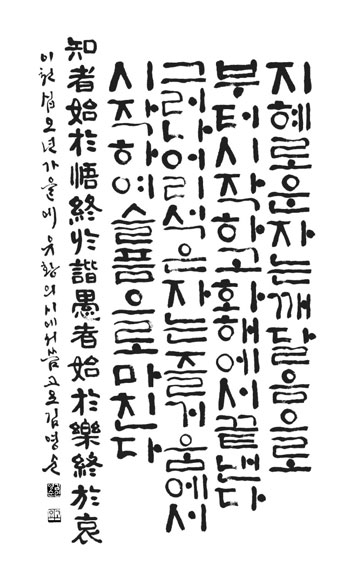 지혜로운자는깨달음으로
부터시작하고화해에서끝낸다
그러나어리석은자는즐거움에서
시작하여슬픔으로마친다
知者始於悟終於諧愚者始於樂終於哀
이천십오년가을에유향의시에서씀